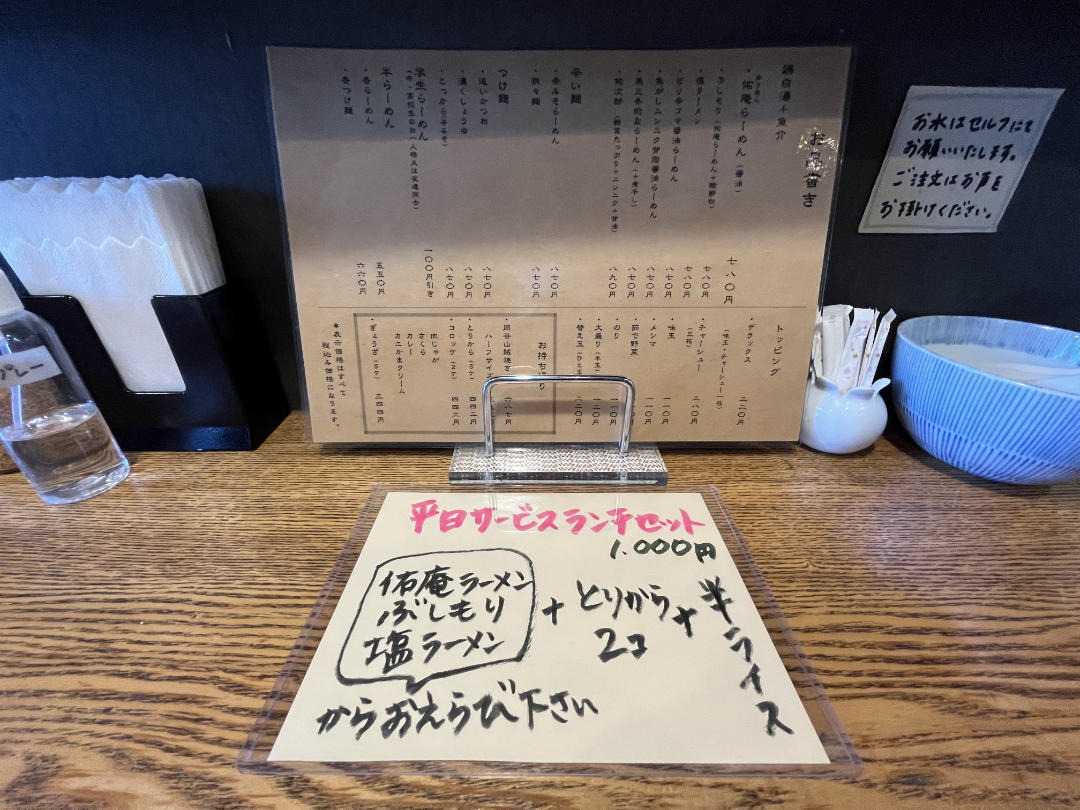 おしながき
鶏白湯+魚介
・佑庵らーめん（醤油） 七八〇円
・ぶしもり（佑庵らーめん+鰹節粉） 八七〇円
・塩ラーメン 七八〇円
・ピリ辛ゴマ醤油らーめん 八七〇円
・魚がしニンニク背脂醤油らーめん 八七〇円
・燕三条的ならーめん（+煮干し） 八七〇円
・佑次郎（野菜たっぷり+ニンニク+背油） 八九〇円
辛い麺
・辛みそらーめん 八七〇円
・担々麺 八七〇円
つけ麺
・追いかつお 八七〇円
・濃くしょうゆ 八七〇円
・とっから辛みそ 八七〇円
学生らーめん 一〇〇円引き
半らーめん
・各らーめん 五五〇円
・各つけ麺 六六〇円
トッピング
・デラックス 三二〇円
（味玉・チャーシュー一枚）
・チャーシュー（三枚） 二八〇円
・味玉 一一〇円
・メンマ 一一〇円
・茹で野菜 一一〇円
・のり 一一〇円
・大盛り（半玉） 一二〇円
・替え玉
お持ち帰り
・岡谷山賊焼き 六八七円
ハーフサイズ
・とりから（5ケ） 四四二円
・コロッケ（2ケ） 四四三円
肉じゃが
さくら
カレー
カニかまクリーム
・ぎょうざ（5ケ） 三四四円
＊表示価格はすべて
税込み価格になります。
お水はセルフにて
お願いいたします。
ご注文はお声を
お掛けください。
平日サービスランチセット
1.000円
佑庵ラーメン
ぶしもり
塩ラーメン
+ とりから
2コ
+ 半ライス
からおえらび下さい